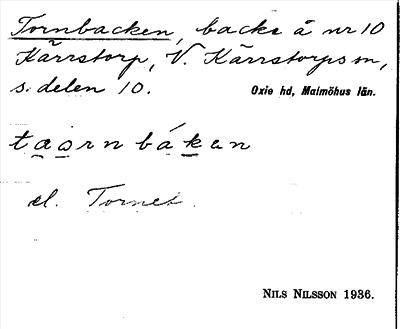 Tornbacken, backe å nr 10
Kärrstorp, V. Kärrstorps sn,
s. delen 10.
Oxie hd, Malmöhus län.
taornbákan
el. Tornet.
NILS NILSSON 1936.